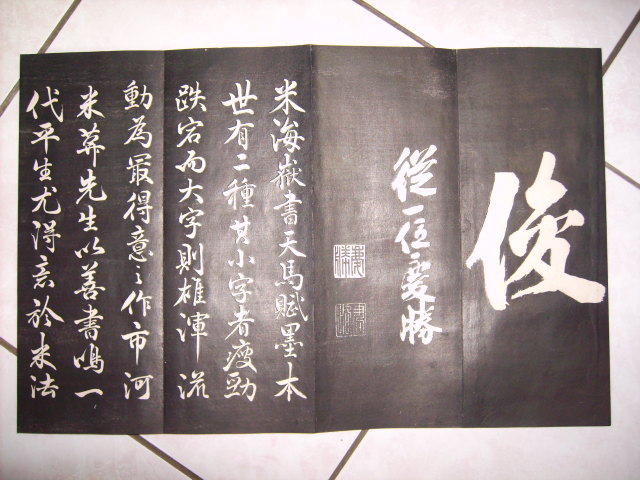 俊
從一位慶勝
米海嶽書天馬賦墨本
世有二種其小字者瘦勁
跌宕而大字則雄渾流
動為㝡得意之作市河
米葊先生以善書鳴一
代平生尤得意於米法